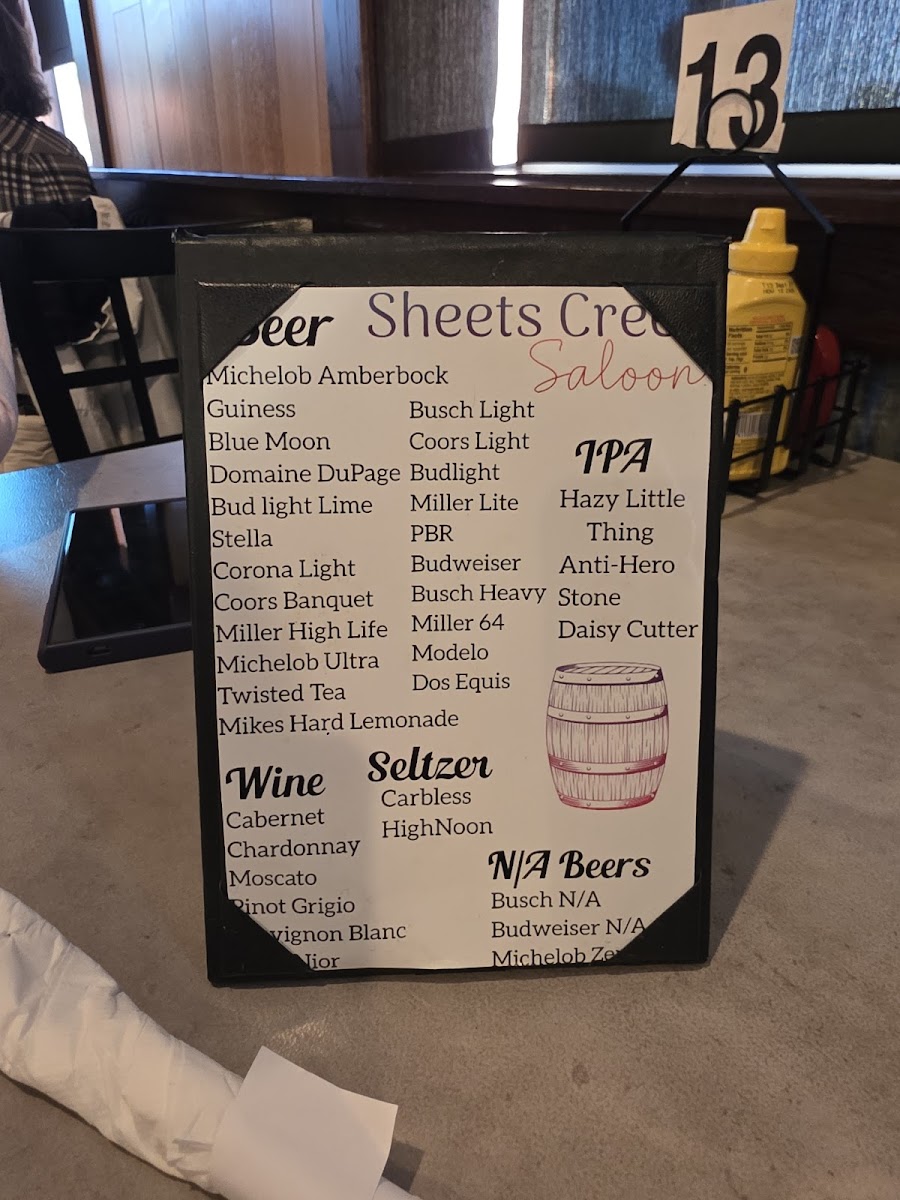 13
Beer
Sheets Cree
Saloon
Michelob Amberbock
Guiness
Blue Moon
Domaine DuPage
Bud light Lime
Stella
Corona Light
Coors Banquet
Miller High Life
Michelob Ultra
Twisted Tea
Mikes Hard Lemonade
Busch Light
Coors Light
Budlight
Miller Lite
PBR
Budweiser
Busch Heavy
Miller 64
Modelo
Dos Equis
IPA
Hazy Little
Thing
Anti-Hero
Stone
Daisy Cutter
Wine
Cabernet
Chardonnay
Moscato
Pinot Grigio
vignon Blanc
Nior
Seltzer
Carbless
HighNoon
N/A Beers
Busch N/A
Budweiser N/A
Michelob Ze